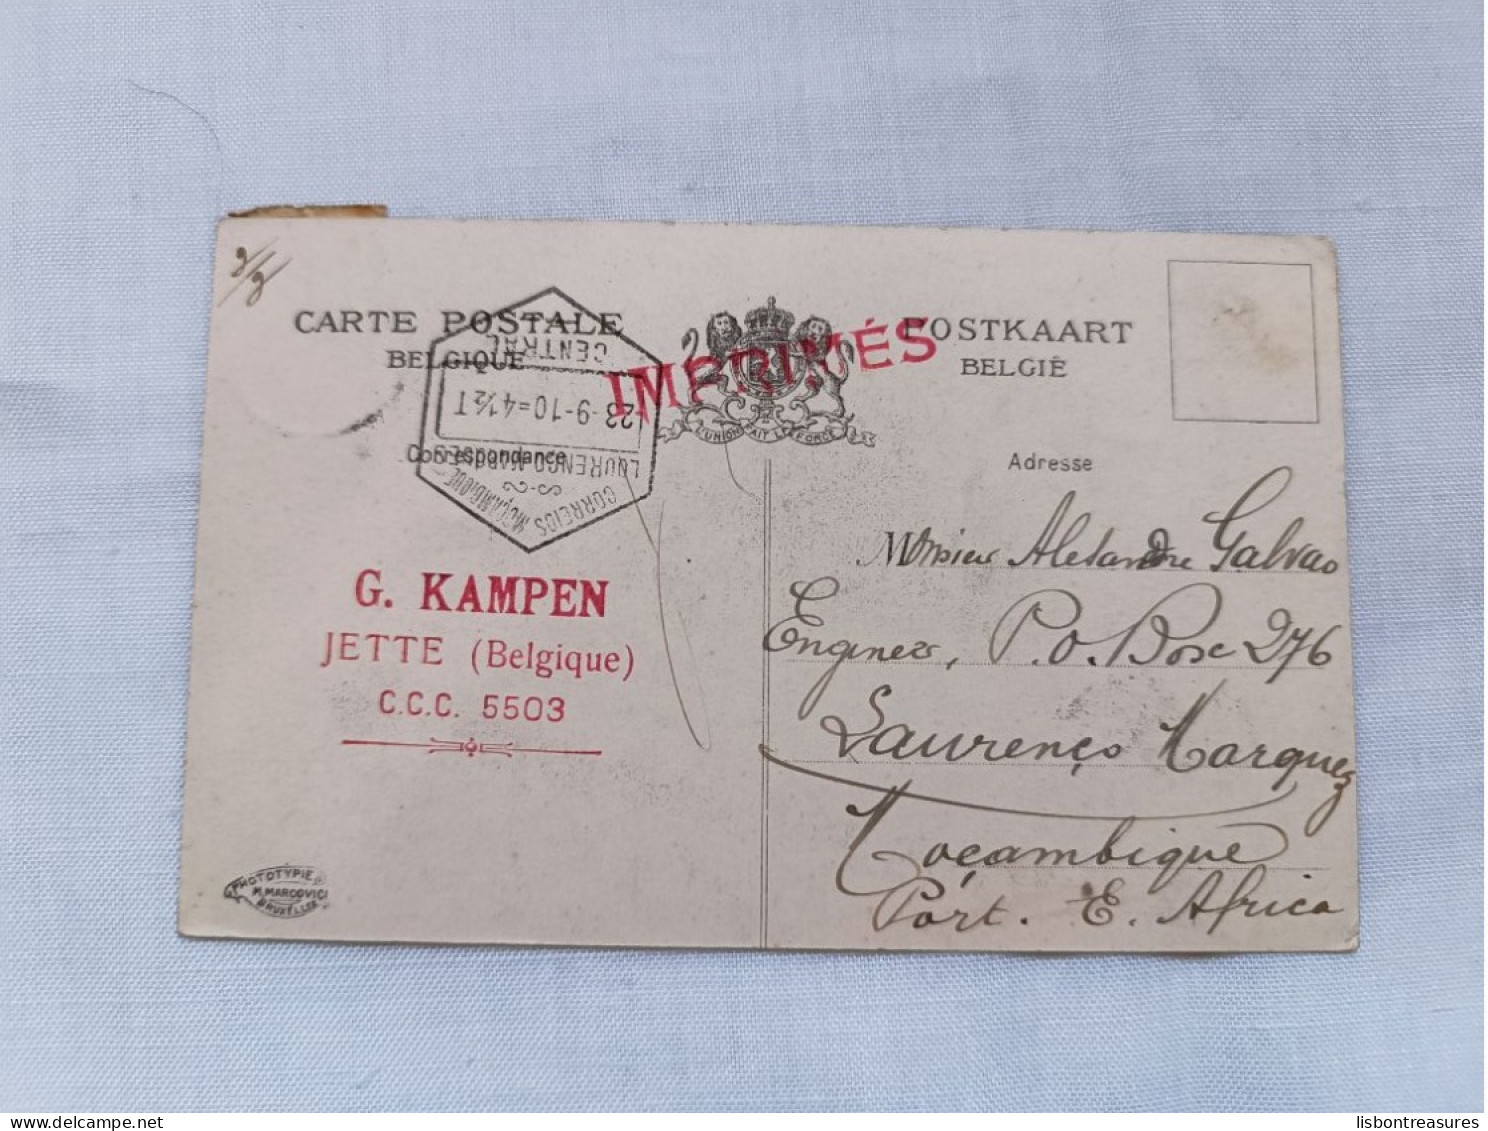 2/3
CARTE POSTALE
BELGIQUE
Correspondance
CORREIOS MOÇAMBIQUE
LOURENÇO MARQUES
23-9-10=4½T
CENTRAL
IMPRIMÉS
L'UNION FAIT LA FORCE
POSTKAART
BELGIË
Adresse
G. KAMPEN
JETTE (Belgique)
C.C.C. 5503
Monsieur Alexandre Galvao
Engineer, P.O. Box 276
Laurenço Marquez
Moçambique
Port. E. Africa
PHOTOTYPIE
M. MARCOVICI
BRUXELLES
lisbontreasures
delcampe.net